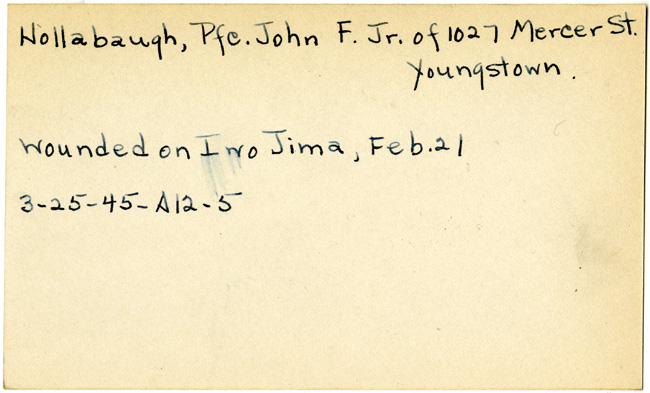 Hollabaugh, Pfc. John F. Jr. of 1027 Mercer St.
Youngstown.
wounded on Iwo Jima, Feb. 21
3-25-45-A12-5